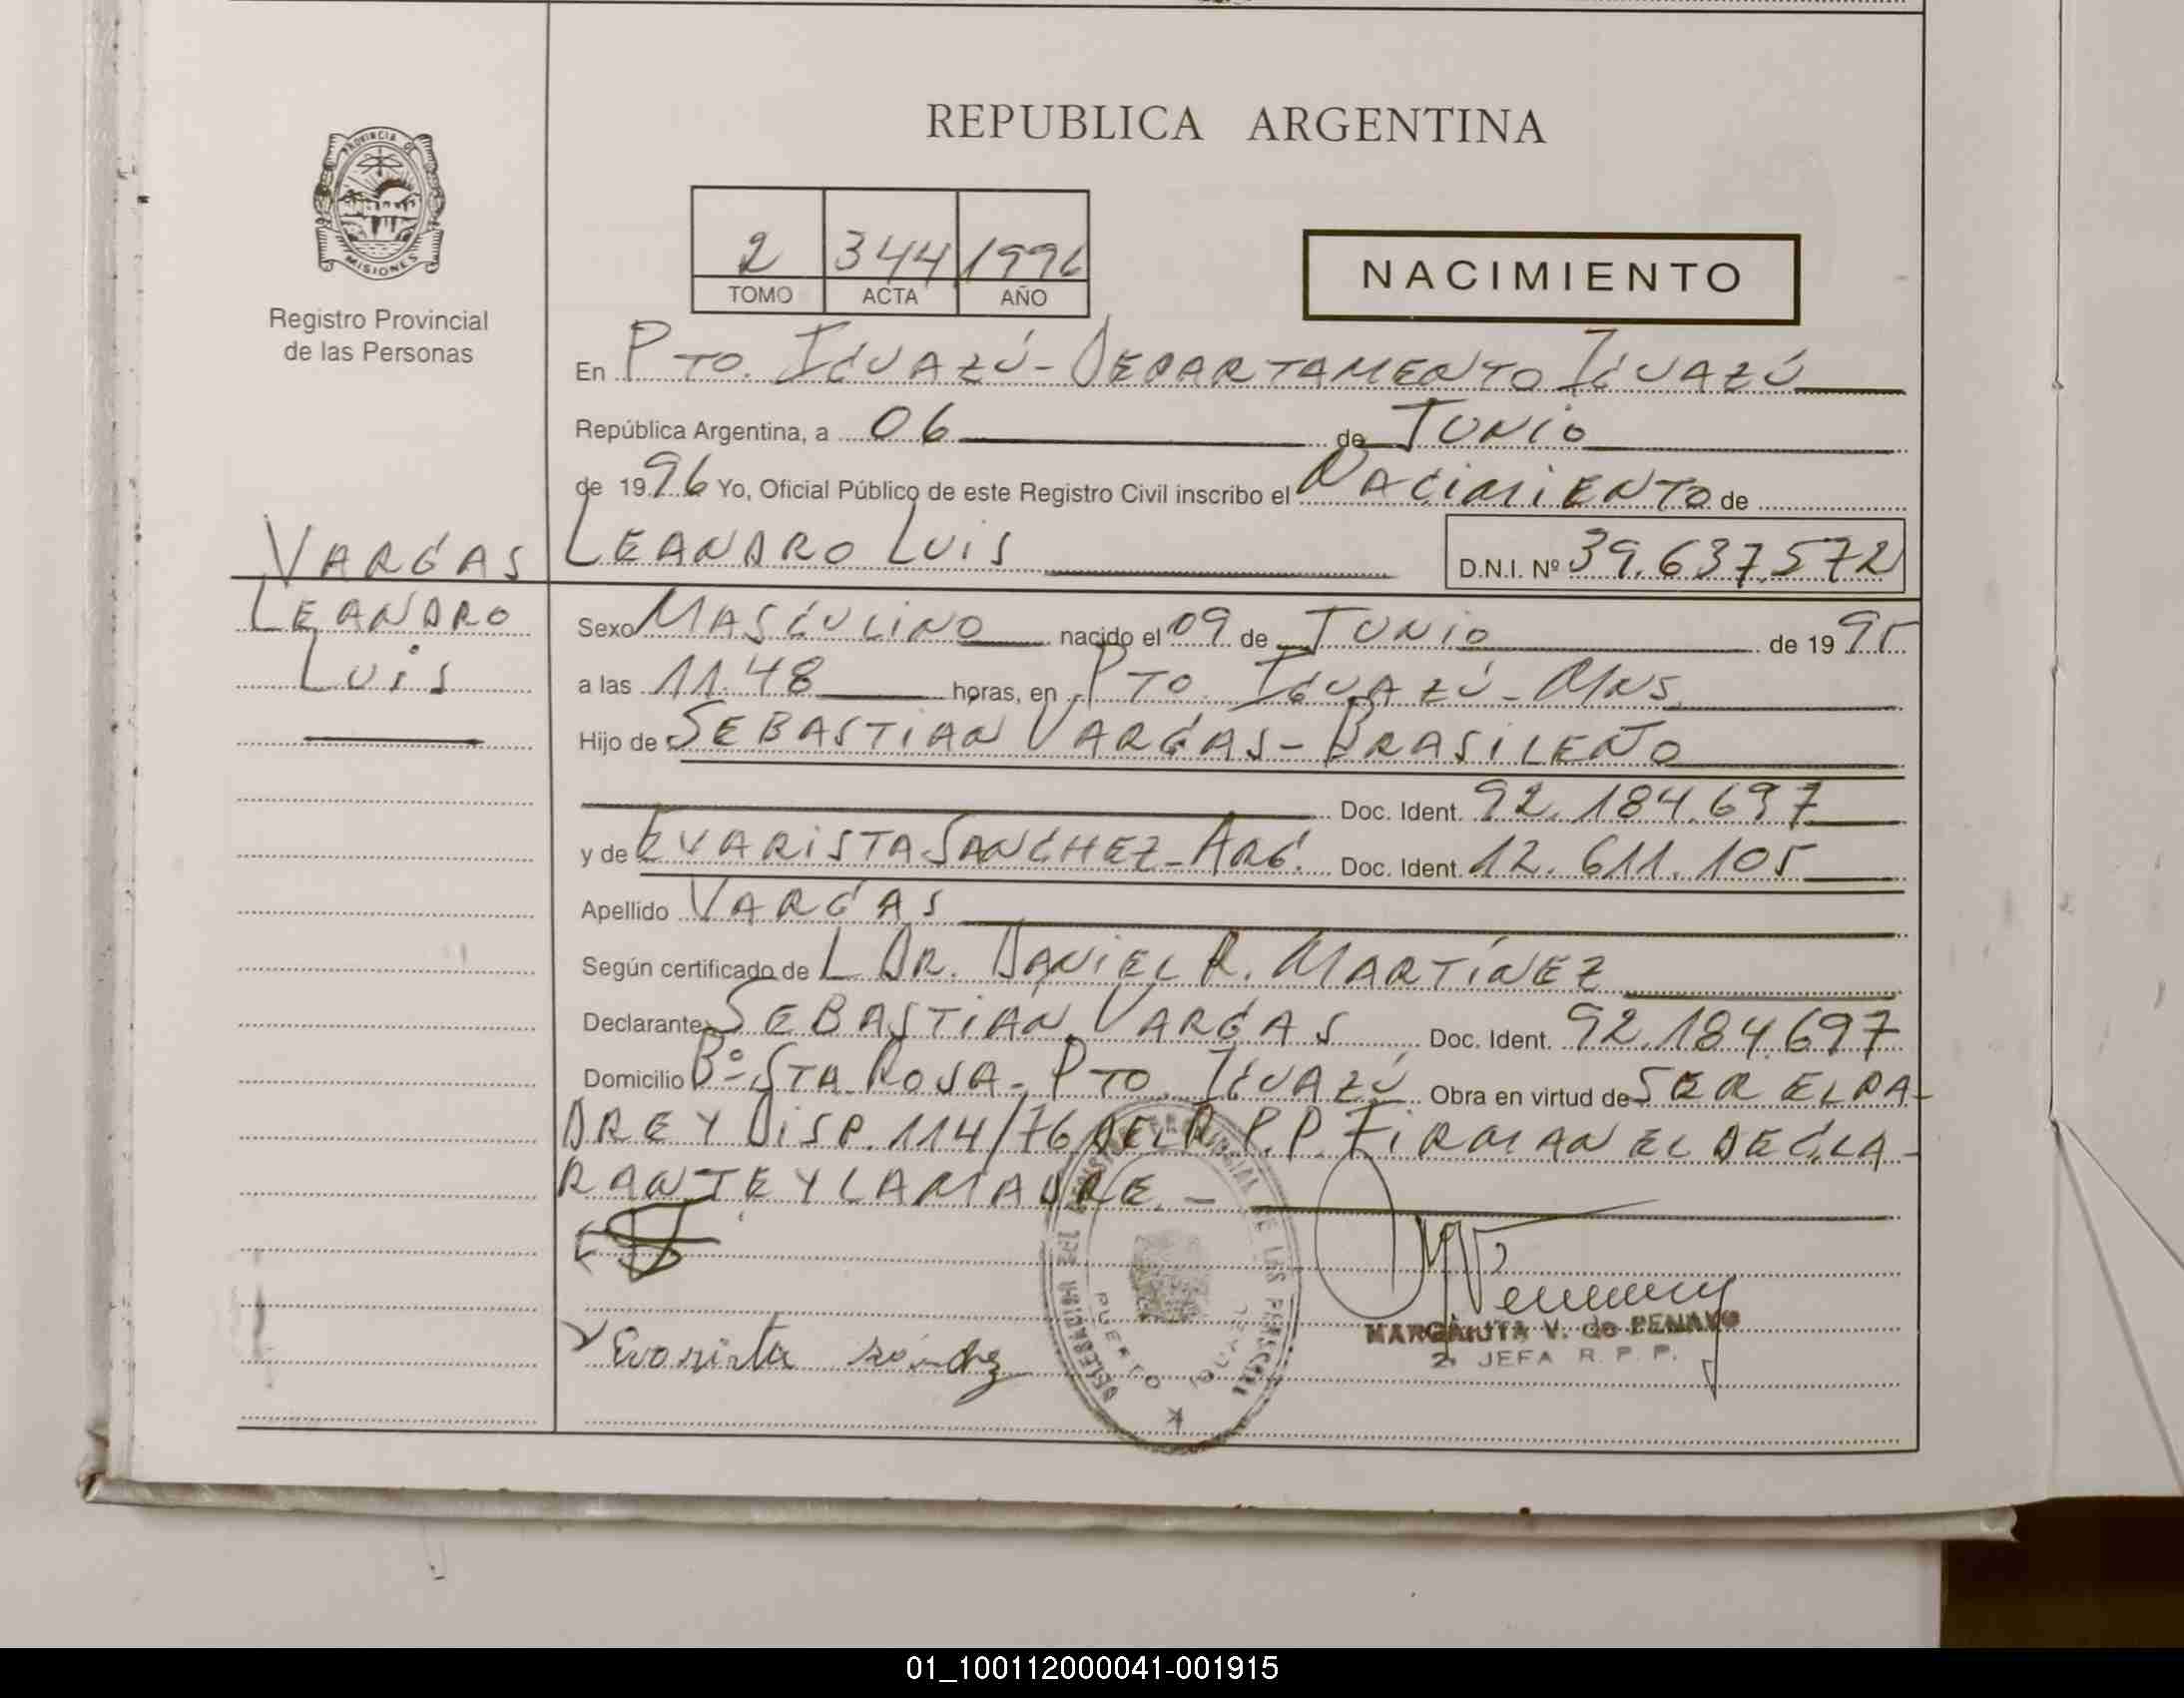 REPUBLICA ARGENTINA
PROVINCIA DE
MISIONES
Registro Provincial
de las Personas
2 344 1996
TOMO ACTA AÑO
NACIMIENTO
En PTO. IGUAZÚ - DEPARTAMENTO IGUAZÚ
República Argentina, a 06 de JUNIO
de 1996 Yo, Oficial Público de este Registro Civil inscribo el NACIMIENTO de
VARGAS
LEANDRO
LUIS
LEANDRO LUIS D.N.I. Nº 39.637.572
Sexo MASCULINO nacido el 09 de JUNIO de 1995
a las 11.48 horas, en PTO. IGUAZÚ - MNS.
Hijo de SEBASTIAN VARGAS - BRASILEÑO
Doc. Ident. 92.184.697
y de EVARISTA SANCHEZ - ARG. Doc. Ident. 12.611.105
Apellido VARGAS
Según certificado de L DR. DANIEL R. MARTÍNEZ
Declarante SEBASTIAN VARGAS Doc. Ident. 92.184.697
Domicilio Bº STA ROSA - PTO. IGUAZÚ Obra en virtud de SER EL PA-
DRE Y DISP. 114/76 DEL R.P.P. FIRMAN EL DECLA-
RANTE Y LA MADRE. -
Evarista sánchez
PUERTO IGUAZU
MARGARITA V. de PENAYO
2ª JEFA R. P. P.
01_100112000041-001915